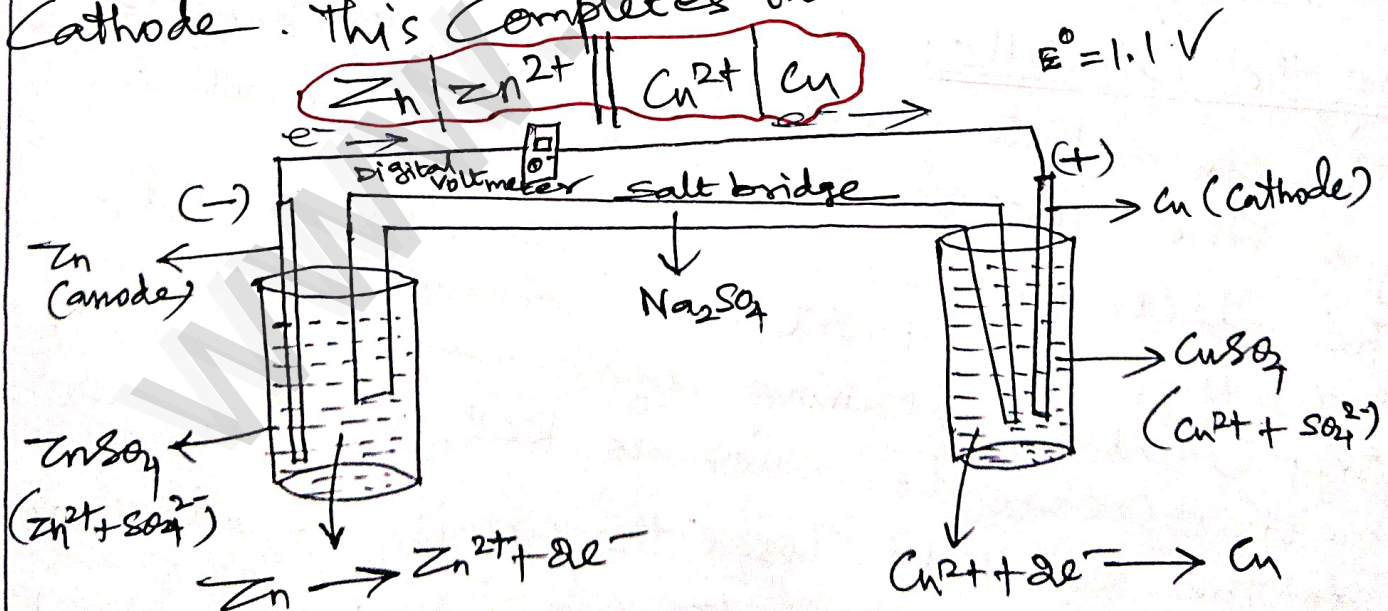 Cathode. This Completes
E⁰ = 1.1 V
Zn | Zn²⁺ || Cu²⁺ | Cu
e⁻ →
e⁻ →
Digital
Voltmeter
Salt bridge
(-)
(+)
Cu (Cathode)
Zn
(anode)
Na₂SO₄
CuSO₄
(Cu²⁺ + SO₄²⁻)
ZnSO₄
(Zn²⁺ + SO₄²⁻)
Zn → Zn²⁺ + 2e⁻
Cu²⁺ + 2e⁻ → Cu
www.